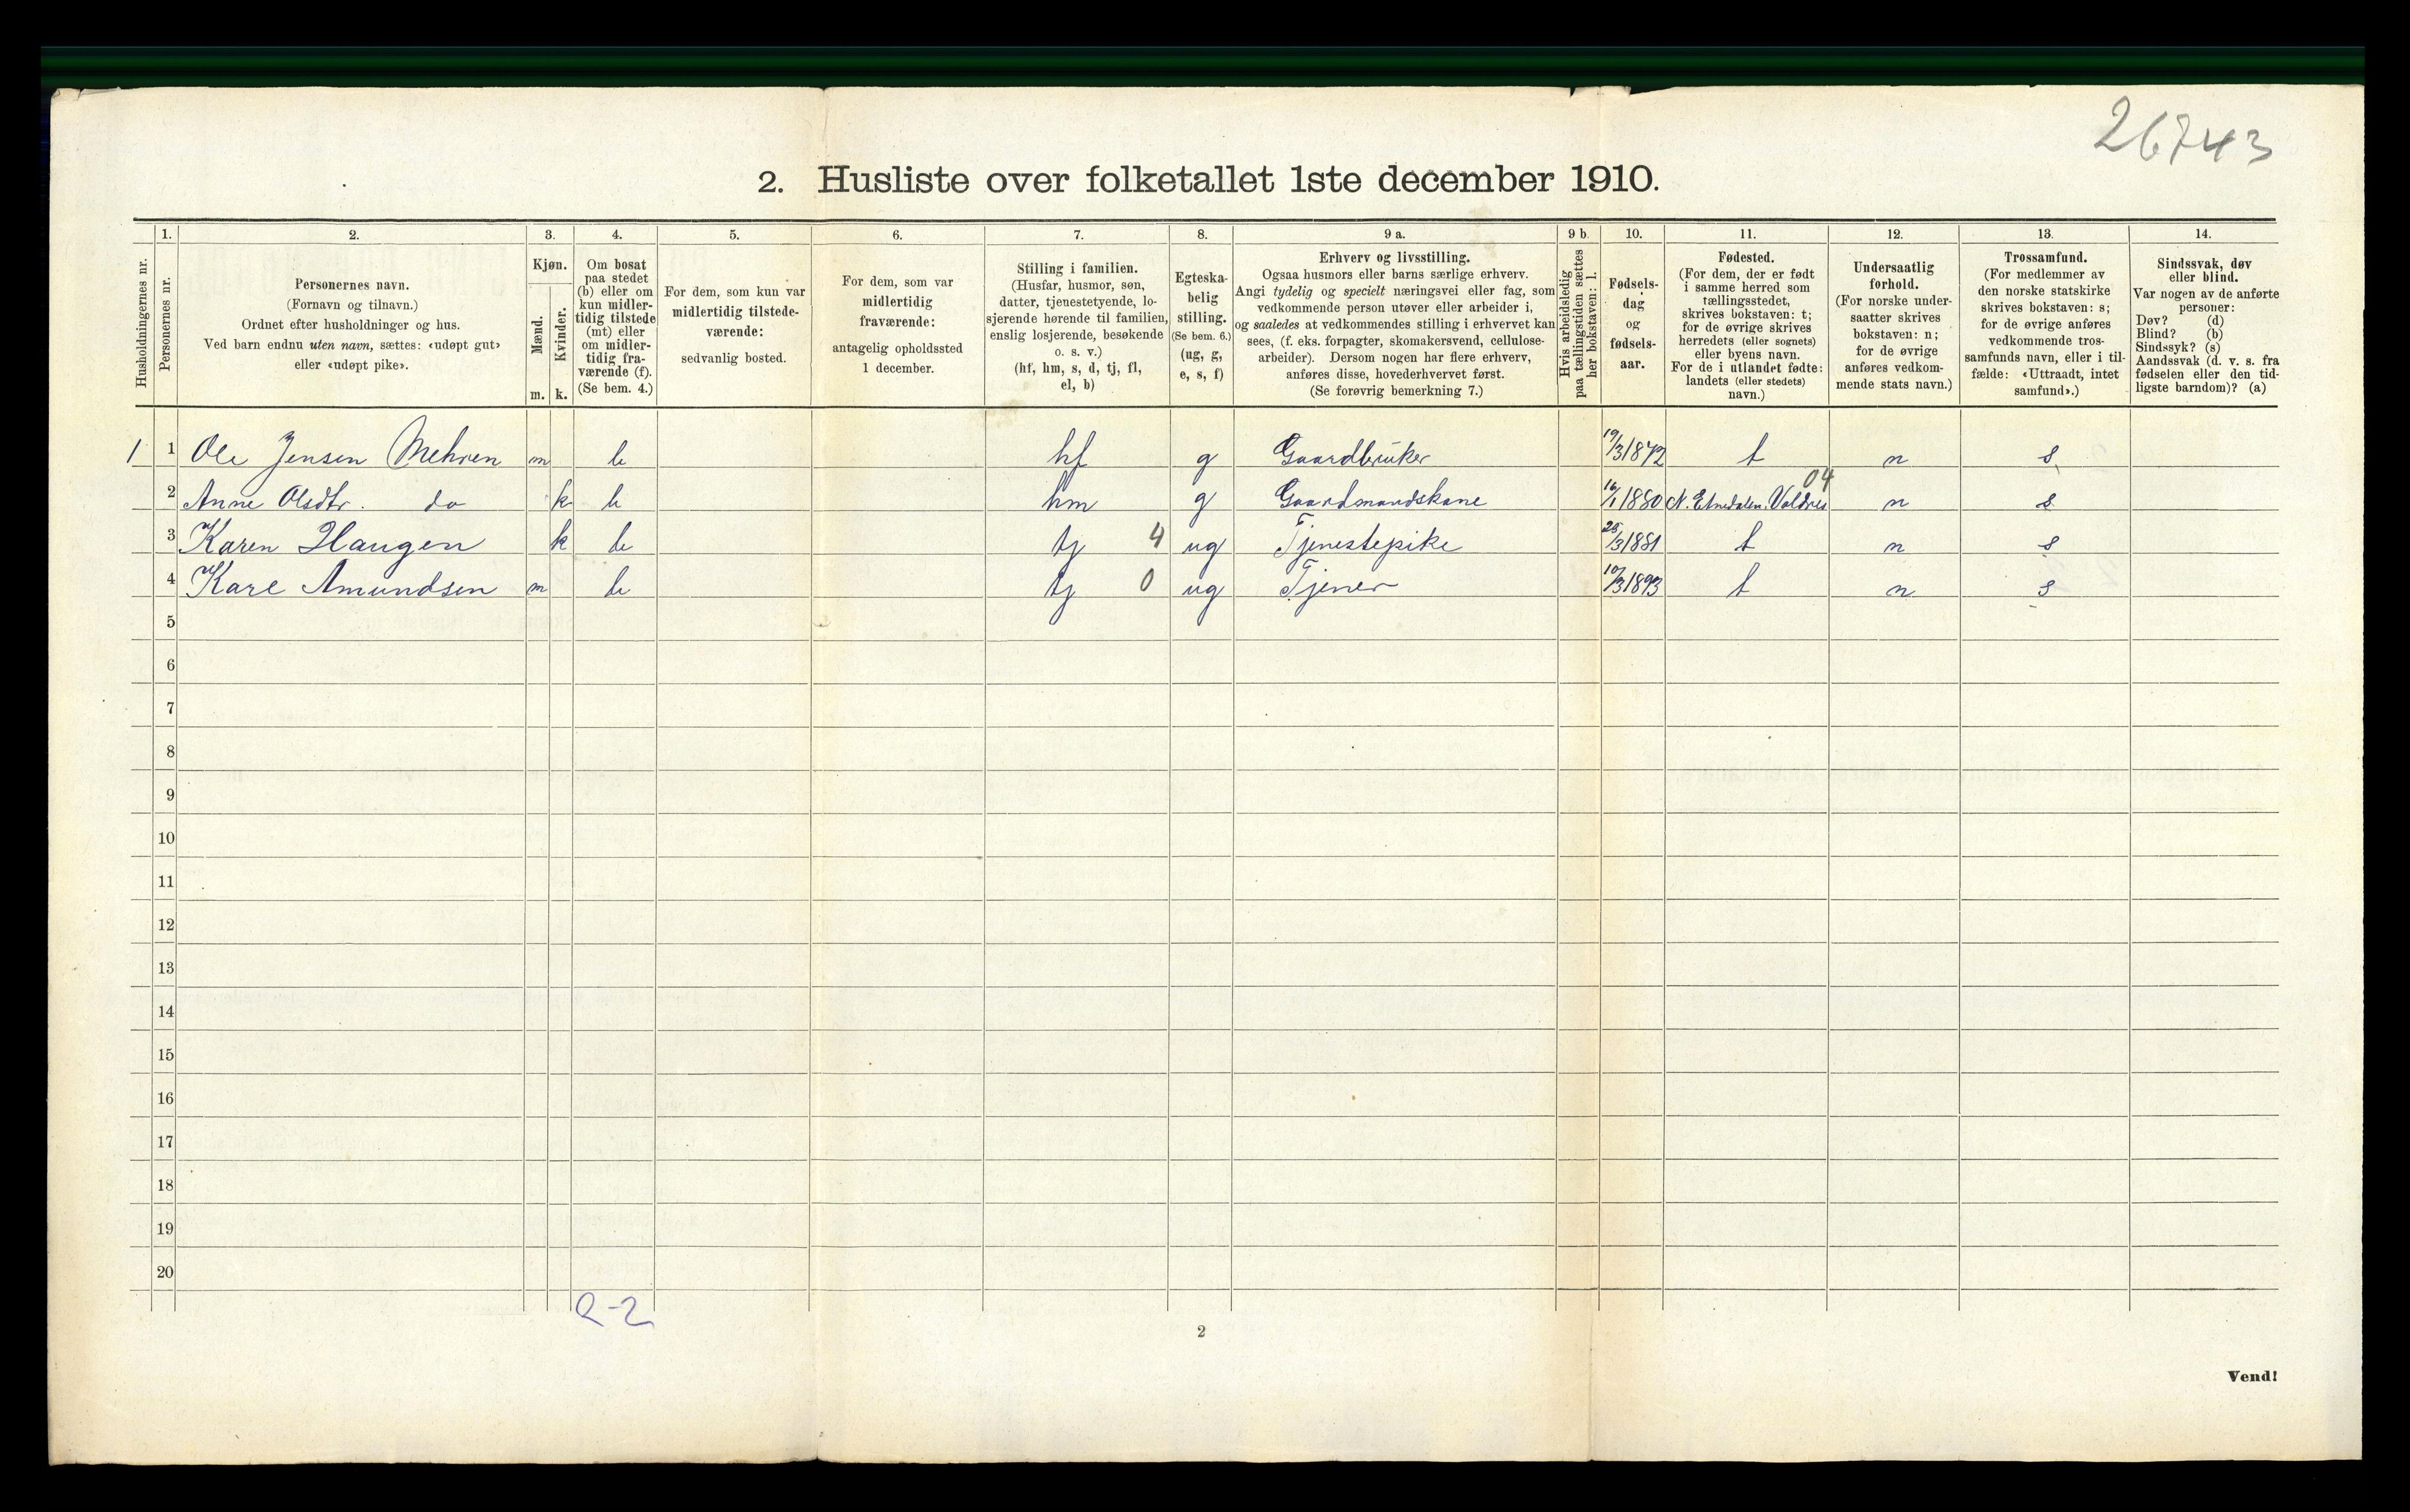 26743
2. Husliste over folketallet 1ste december 1910.
Husholdningernes nr.
1.
Personernes nr.
2.
Personernes navn.
(Fornavn og tilnavn.)
Ordnet efter husholdninger og hus.
Ved barn endnu uten navn, sættes: «udøpt gut»
eller «udøpt pike».
3.
Kjøn.
Mænd.
Kvinder.
m. k.
4.
Om bosat
paa stedet
(b) eller om
kun midler-
tidig tilstede
(mt) eller
om midler-
tidig fra-
værende (f).
(Se bem. 4.)
5.
For dem, som kun var
midlertidig tilstede-
værende:
sedvanlig bosted.
6.
For dem, som var
midlertidig
fraværende:
antagelig opholdssted
1 december.
7.
Stilling i familien.
(Husfar, husmor, søn,
datter, tjenestetyende, lo-
sjerende hørende til familien,
enslig losjerende, besøkende
o. s. v.)
(hf, hm, s, d, tj, fl,
el, b)
8.
Egteska-
belig
stilling.
(Se bem. 6.)
(ug, g,
e, s, f)
9 a.
Erhverv og livsstilling.
Ogsaa husmors eller barns særlige erhverv.
Angi tydelig og specielt næringsvei eller fag, som
vedkommende person utøver eller arbeider i,
og saaledes at vedkommendes stilling i erhvervet kan
sees, (f. eks. forpagter, skomakersvend, cellulose-
arbeider). Dersom nogen har flere erhverv,
anføres disse, hovederhvervet først.
(Se forøvrig bemerkning 7.)
9 b.
Hvis arbeidsledig
paa tællingstiden sættes
her bokstaven: l.
10.
Fødsels-
dag
og
fødsels-
aar.
11.
Fødested.
(For dem, der er født
i samme herred som
tællingsstedet,
skrives bokstaven: t;
for de øvrige skrives
herredets (eller sognets)
eller byens navn.
For de i utlandet fødte:
landets (eller stedets)
navn.)
12.
Undersaatlig
forhold.
(For norske under-
saatter skrives
bokstaven: n;
for de øvrige
anføres vedkom-
mende stats navn.)
13.
Trossamfund.
(For medlemmer av
den norske statskirke
skrives bokstaven: s;
for de øvrige anføres
vedkommende tros-
samfunds navn, eller i til-
fælde: «Uttraadt, intet
samfund».)
14.
Sindssvak, døv
eller blind.
Var nogen av de anførte
personer:
Døv? (d)
Blind? (b)
Sindssyk? (s)
Aandssvak (d. v. s. fra
fødselen eller den tid-
ligste barndom)? (a)
1 1 Ole Jensen Mehren m b hf g Gaardbruker 19/3 1872 t n s
04
2 Anne Olsdtr. do k b hm g Gaardmandskone 16/1 1880 N. Etnedalen. Valdres n s
3 Karen Haugen k b tj 4 ug Tjenestepike 25/3 1881 t n s
4 Karl Amundsen m b tj 0 ug Tjener 10/3 1893 t n s
5
6
7
8
9
10
11
12
13
14
15
16
17
18
19
20
2-2
2
Vend!